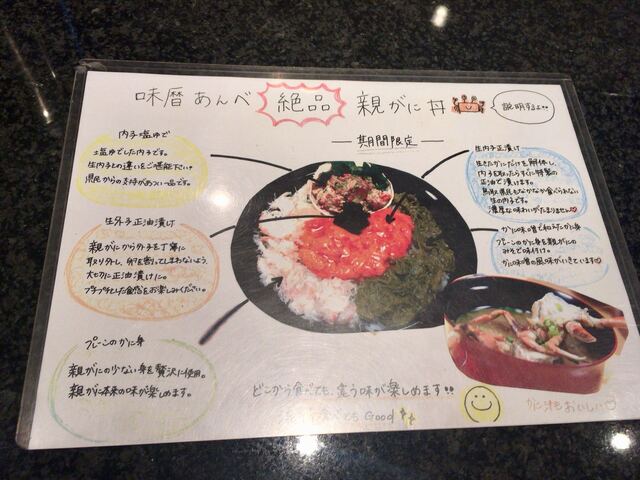 味暦あんべ 絶品 親がに丼
説明するよ!!
期間限定
内子塩ゆで
塩ゆでした内子です。
生内子との違いをご堪能下さい。
県民からの支持があつい一品です。
生外子正油漬け
親がにから外子を丁寧に
取り外し、卵を割ってしまわないよう、
大切に正油漬けに。
プチプチとした食感をお楽しみください。
プレーンのかに身
親がにの少ない身を贅沢に使用。
親がに本来の味が楽しめます。
生内子正油漬け
生きたかにだけを解体し、
内子を取ったらすぐに特製の
正油で漬けます。
鳥取県民もなかなか食べられない
生の内子です。
濃厚な味わいがたまりません♡
かに味噌で和えたかに身
プレーンのかに身を親がにの
みそで味付け。
かに味噌の風味がいきています
どこから食べても、違う味が楽しめます!!
Good
かに汁もおいしい♡